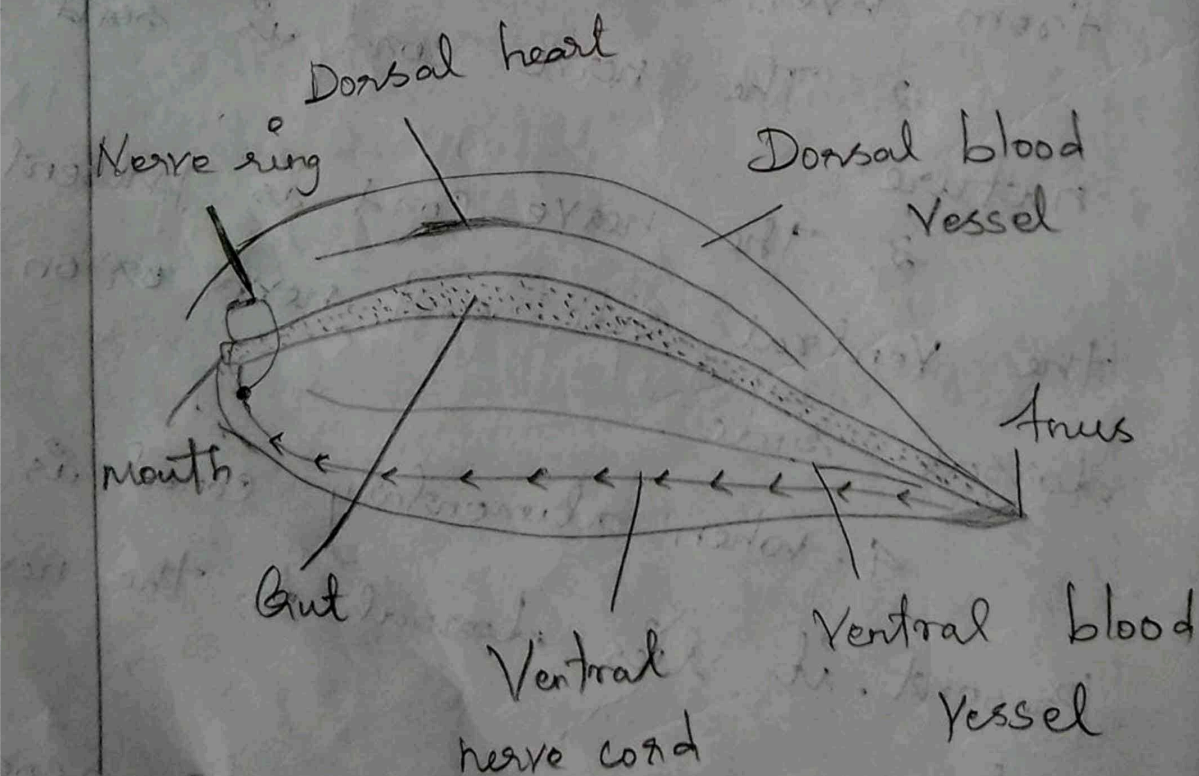 Dorsal heart
Nerve ring
Dorsal blood
Vessel
Anus
mouth.
Gut
Ventral
nerve cord
Ventral blood
Vessel